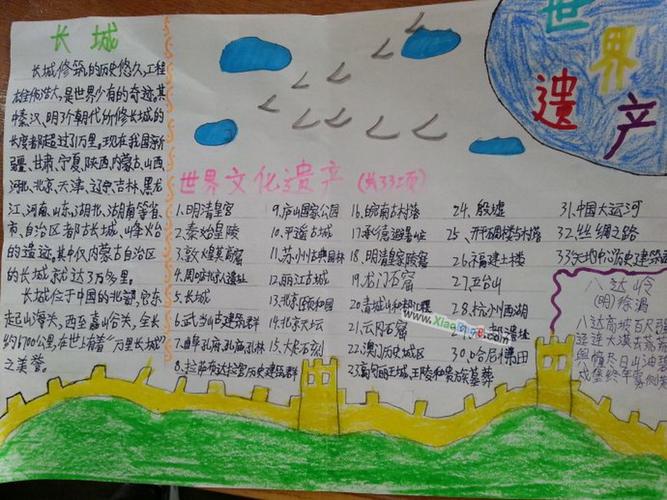 长城
长城修筑的历史悠久,工程
雄伟浩大,是世界少有的奇迹,其
中秦汉、明3个朝代所修长城的
长度都超过了1万里。现在我国新
疆、甘肃、宁夏、陕西、内蒙古、山西
河北、北京、天津、辽宁、吉林、黑龙
江、河南、山东、湖北、湖南等省
市、自治区都有古长城、烽火台
的遗迹。其中仅内蒙古自治区
的长城就达3万多里。
长城位于中国的北部,它东
起山海关,西至嘉山谷关,全长
约6700公里,在世上有着“万里长城”
之美誉。
世界
遗产
世界文化遗产(共33项)
1.明清皇宫
2.秦始皇陵
3.敦煌莫高窟
4.周口北京人遗址
5.长城
6.武当山古建筑群
7.曲阜孔府、孔庙、孔林
8.拉萨布达拉宫历史建筑群
9.庐山国家公园
10.平遥古城
11.苏州古典园林
12.丽江古城
13.北京颐和园
14.北京天坛
15.大足石刻
16.皖南古村落
17.承德避暑山庄
18.明清皇家陵寝
19.龙门石窟
20.青城山和都江堰
21.云冈石窟
22.澳门历史城区
23.高句丽王城、王陵和贵族墓葬
24.殷墟
25.开平碉楼与村落
26.福建土楼
27.五台山
28.杭州西湖
遗址
30.哈尼梯田
31.中国大运河
32.丝绸之路
33天地中心历史建筑
八达岭
(明)徐渭
八达高坡百尺
径连大漠去荒
舆情尽日山油
戍堡终年雾